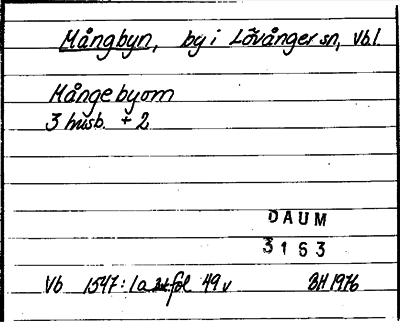 Mångbyn, by i Lövånger sn, Vb l.
Månge byom
3 husb. + 2
DAUM
3163
Vb 1547: 1a fol 49 v BH 1976